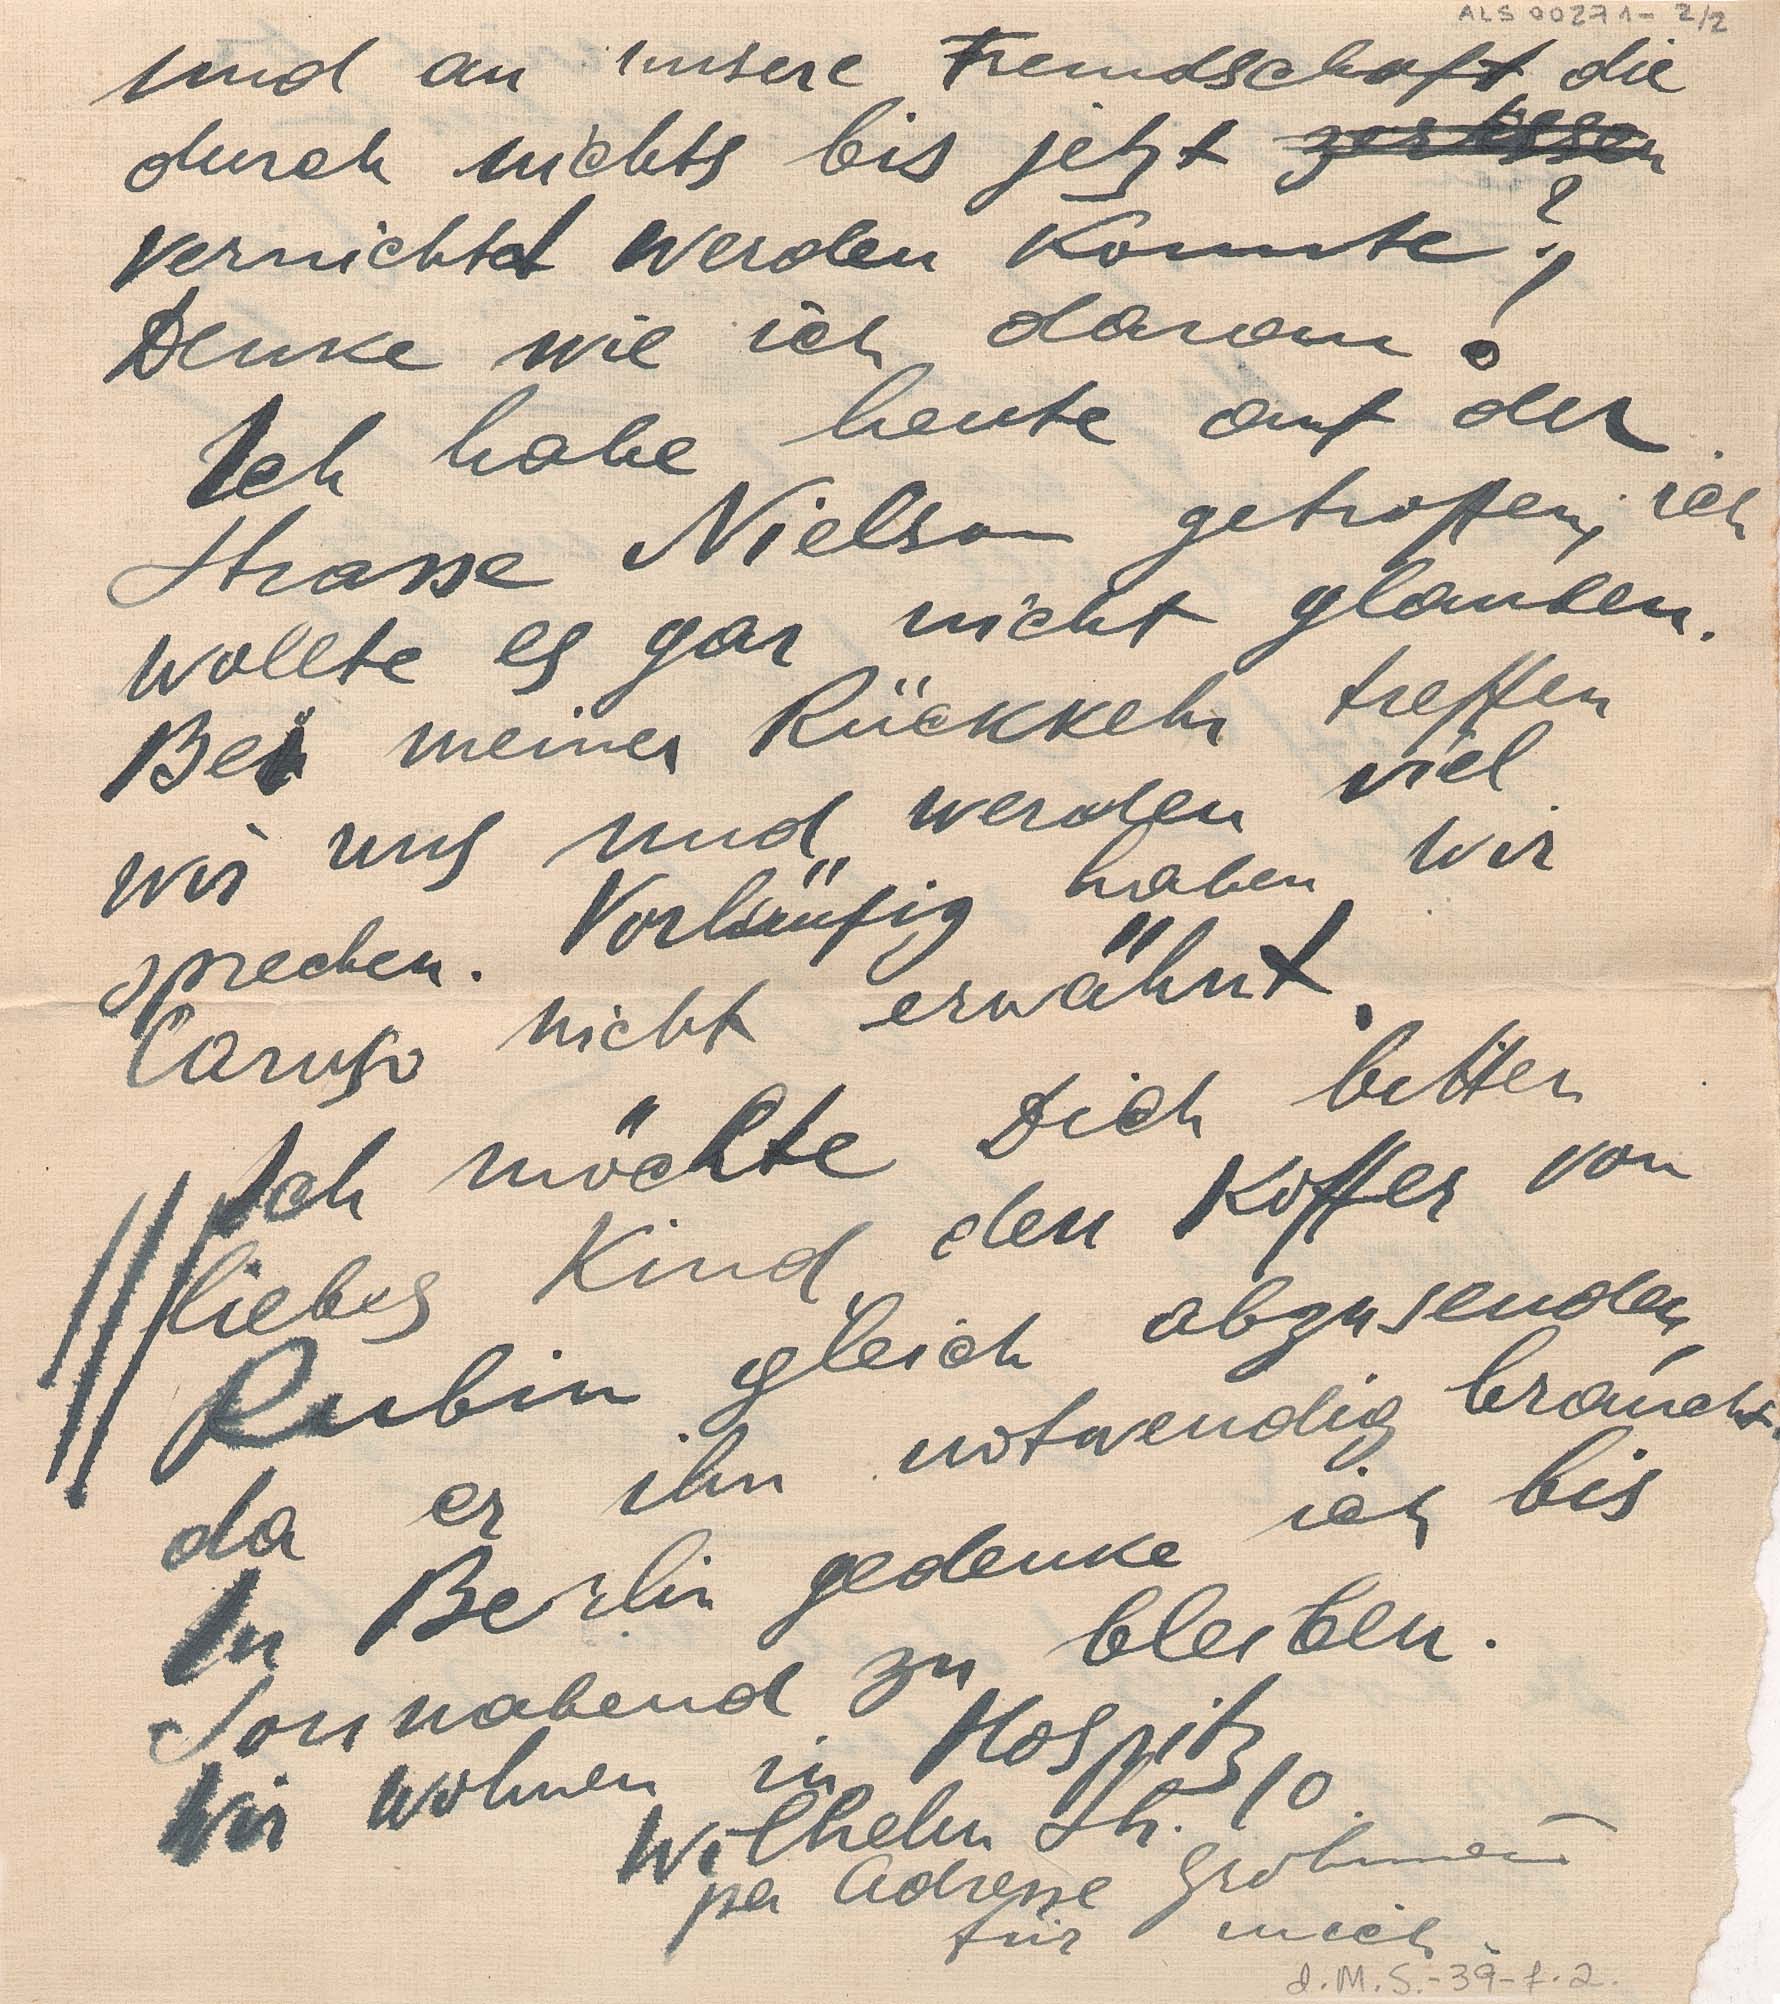 ALS 00271- 2/2
und an unsere Freundschaft die
durch nichts bis jetzt zerrissen
vernichtet werden konnte?,
Denke wie ich daran!
Ich habe heute auf der
Strasse Nielson getroffen, ich
wollte es gar nicht glauben.
Bei meiner Rückkehr treffen
wir uns und werden viel
sprechen. Vorläufig haben wir
Caruso nicht erwähnt.
Ich möchte Dich bitten
liebes Kind, den Koffer von
Rubin gleich abzusenden,
da er ihn notwendig braucht.
In Berlin gedenke ich bis
Sonnabend zu bleiben.
Wir wohnen in Hospitz
Wilhelm Str. 10.
per Adresse Grohmann
für mich.
d.M.S.-39-f.2.